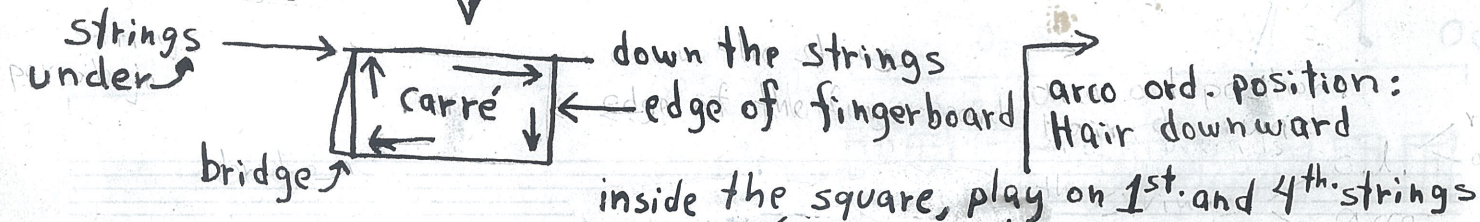 strings
under
down the strings
carré
edge of fingerboard
arco ord. position:
Hair downward
bridge
inside the square, play on 1st. and 4th. strings